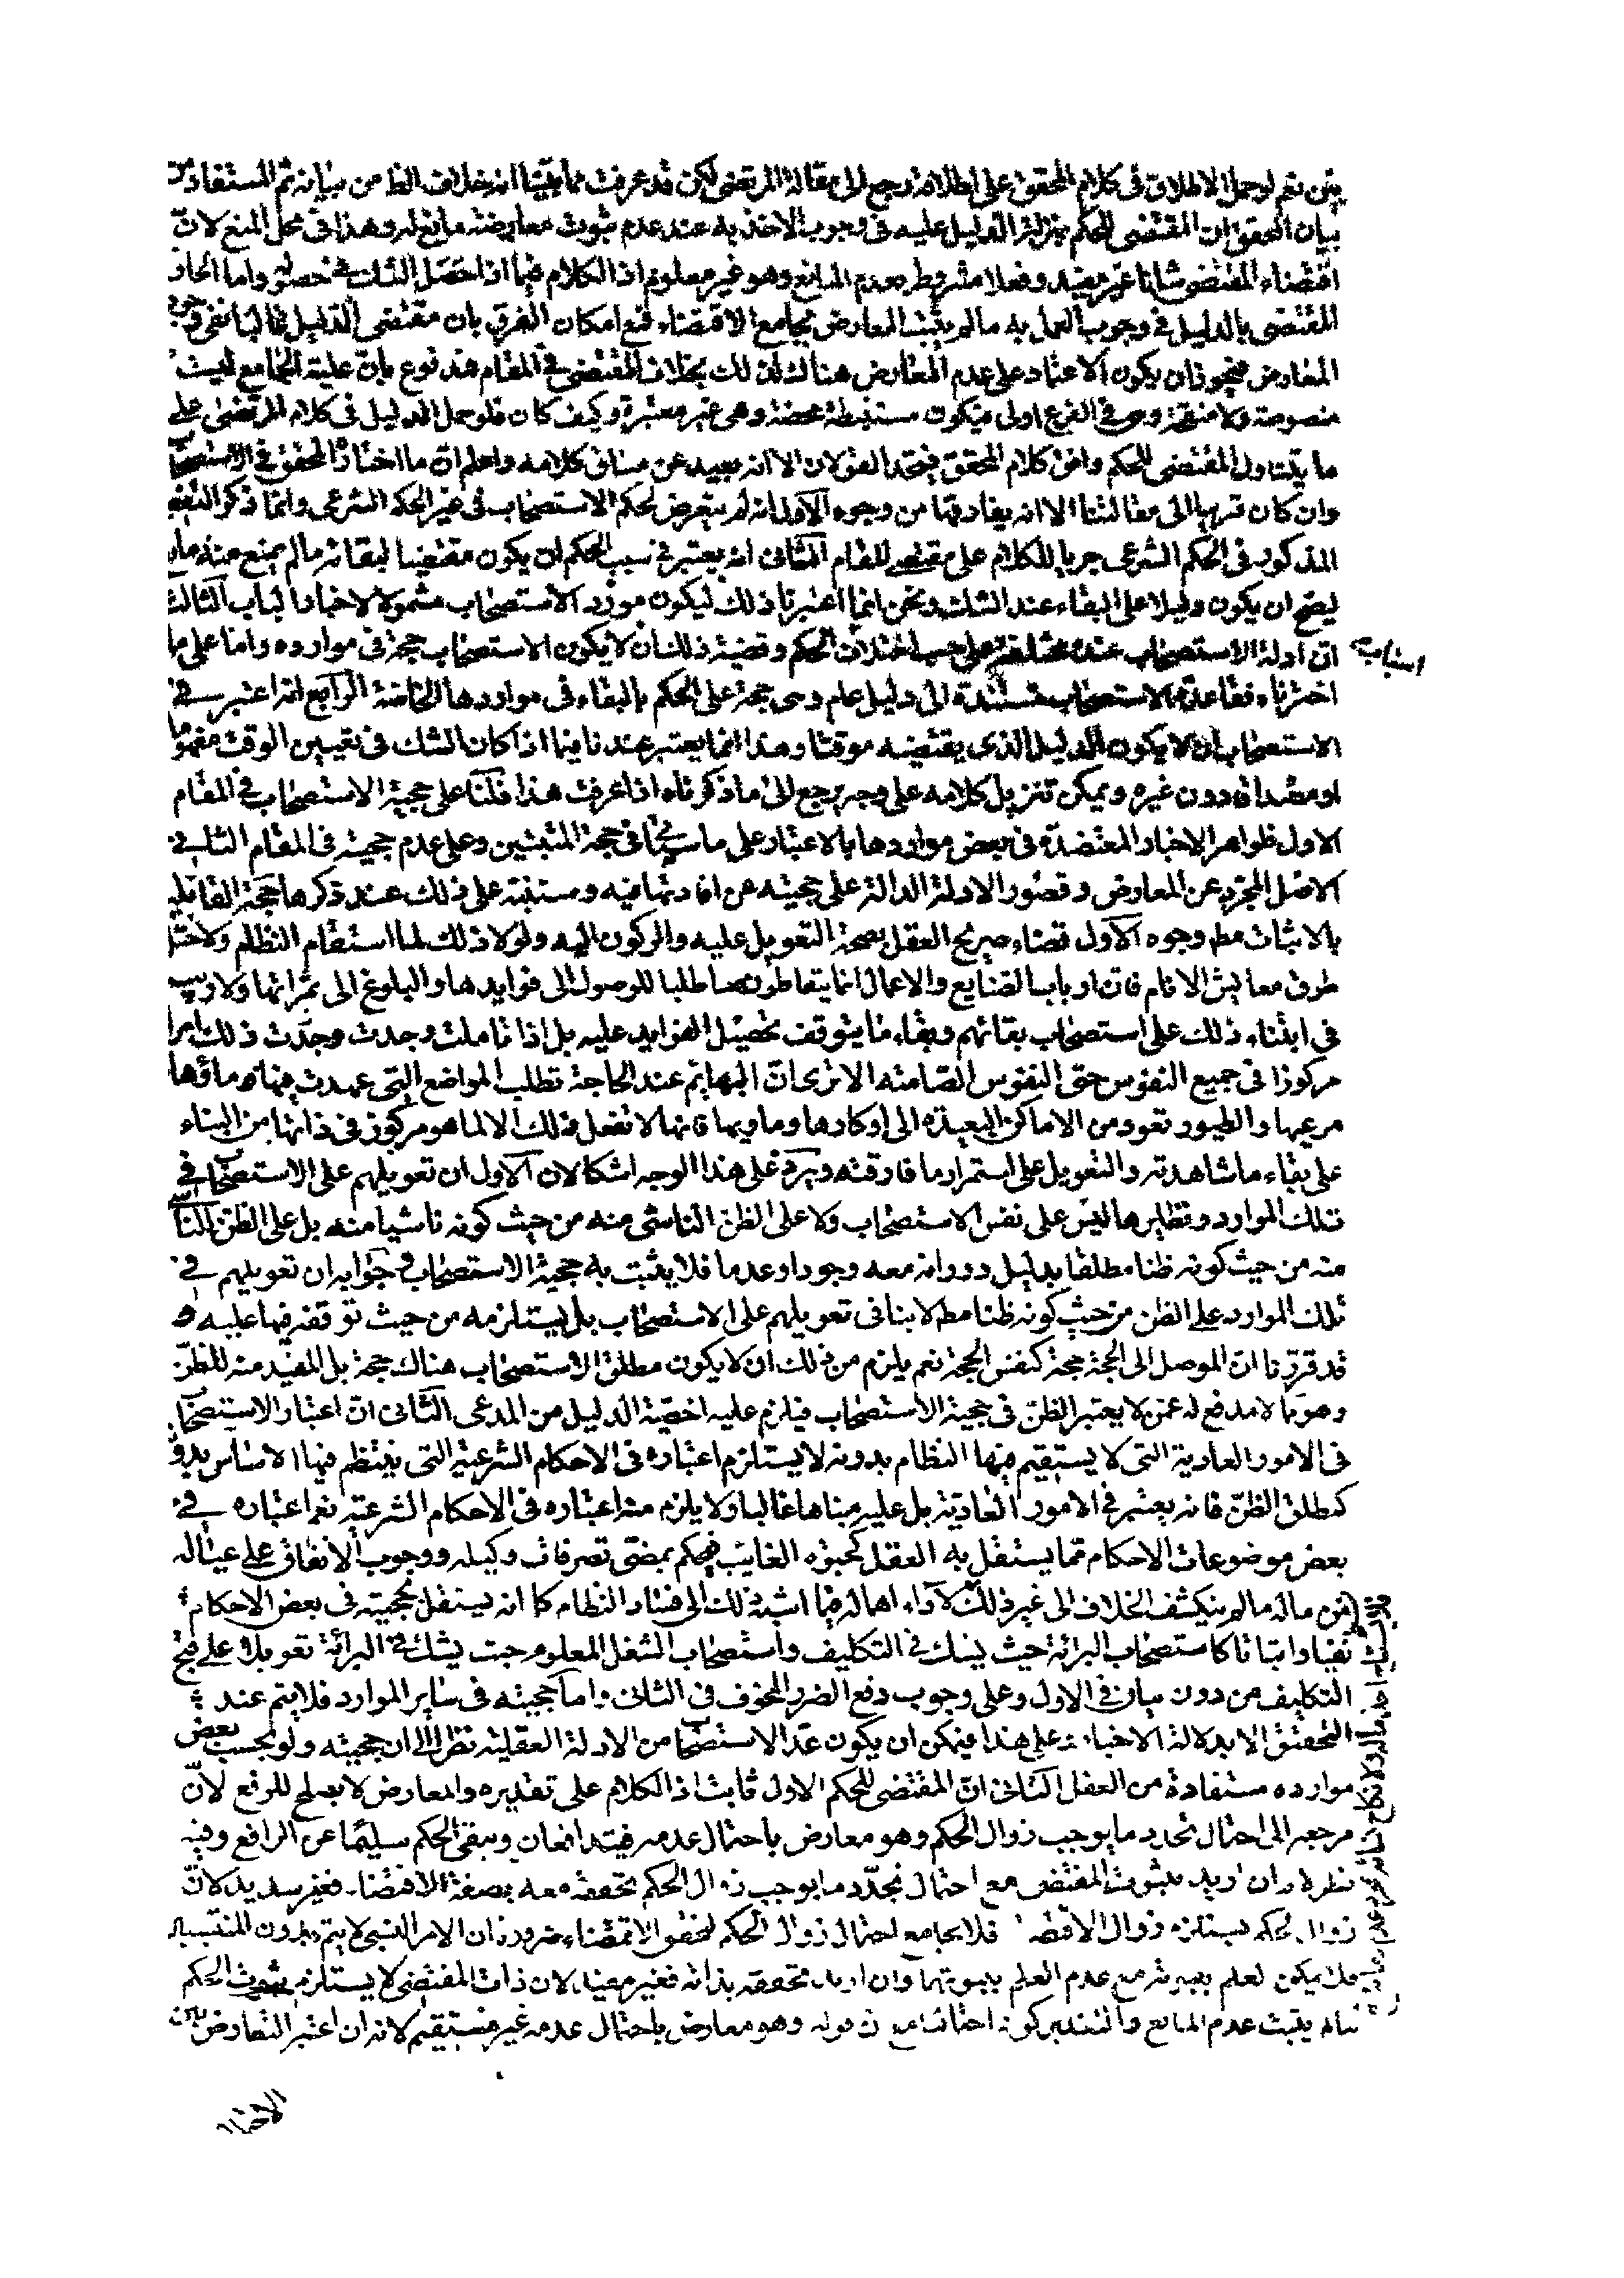 بين نعم لو حمل الاطلاق فى كلام المحقق على اطلاقه رجع الى مقالة المرتضى لكن قد عرفت مما بيّنا انه خلاف الظ من بيانه ثم المستفاد من
بيان المحقق ان المقتضى للحكم بمنزلة الدليل عليه فى وجوب الاخذ به عند عدم ثبوت معارضة مانع له وهذا فى محل المنع لانّ
اقتضاء المقتضى شانا غير مفيد وفعلا مشروط بعدم المانع وهو غير معلوم اذ الكلام فيما اذا حصل الشك فى حصوله واما الحاق
المقتضى بالدليل فى وجوب العمل به ما لم يثبت المعارض بجامع الاقتضاء فمع امكان الفرق بان مقتضى الدليل غالبا نفى وجود
المعارض فيجوز ان يكون الاعتماد على عدم المعارض هناك لذلك بخلاف المقتضى فى المقام مدفوع بانّ علية الجامع ليست
منصوصة ولا منقحة وهى فى الفرع اولى فيكون مستنبطة محضة وهى غير معتبرة وكيف كان فلو حمل الدليل فى كلام المرتضى على
ما يتناول المقتضى للحكم وافق كلام المحقق فيتحد القولان الا انه بعيد عن مساق كلامه واعلم ان ما اختاره المحقق فى الاستصحاب
وان كان قريبا الى مقالتنا الا انه يفارقها من وجوه الاول انه لم يتعرض لحكم الاستصحاب فى غير الحكم الشرعى وانما ذكر التفصيل
المذكور فى الحكم الشرعى جريا للكلام على مقتضى المقام الثانى انه يعتبر فى سبب الحكم ان يكون مقتضيا لبقائه ما لم يمنع منه مانع
ليصح ان يكون دليلا على البقاء عند الشك ونحن انما اعتبرنا ذلك ليكون مورد الاستصحاب مشمولا لاخبار الباب الثالث
ان ادلة الاستصحاب عنده مختلفة على حسب اختلاف الحكم وقضية ذلك ان لا يكون الاستصحاب حجة فى موارده واما على ما
اسباب
اخترناه فقاعدة الاستصحاب مستندة الى دليل عام وهى حجة على الحكم بالبقاء فى مواردها الخاصة الرابع انه اعتبر فى
الاستصحاب ان لا يكون الدليل الذى يقتضيه موقتا وهذا انما يعتبر عندنا فيما اذا كان الشك فى تعيين الوقت مفهوما
او مصداقا دون غيره ويمكن تنزيل كلامه على وجه يرجع الى ما ذكرناه اذا عرفت هذا فلنا على حجية الاستصحاب فى المقام
الاول ظواهر الاخبار المعتضدة فى بعض مواردها بالاعتبار على ما سيأتى فى حجة المثبتين وعلى عدم حجيته فى المقام الثانى
الاصل المجرد عن المعارض وقصور الادلة الدالة على حجيته عن افادتها فيه وستنبه على ذلك عند ذكرها حجة القائلين
بالاثبات مط وجوه الاول قضاء صريح العقل بصحة التعويل عليه والركون اليه ولولا ذلك لما استقام النظام ولاختل
طرق معايش الانام فان ارباب الصنايع والاعمال انما يتعاطونها طلبا للوصول الى فوايدها والبلوغ الى ثمراتها ولا ريب
فى ابتناء ذلك على استصحاب بقائهم وبقاء ما يتوقف تحصيل الفوايد عليه بل اذا تاملت وجدت وجدّت ذلك امرا
مركوزا فى جميع النفوس حتى النفوس الصامتة الا ترى انّ البهايم عند الحاجة تطلب المواضع التى عهدت فيها ماؤها
مرعيها والطيور تعود من الاماكن البعيدة الى اوكارها وماويها فانها لا تفعل ذلك الا لما هو مركوز فى ذاتها من البناء
على بقاء ما شاهدته والتعويل على استمرار ما فارقته ويرد على هذا الوجه اشكالان الاول ان تعويلهم على الاستصحاب فى
تلك الموارد ونظايرها ليس على نفس الاستصحاب ولا على الظن الناشى منه من حيث كونه ناشيا منه بل على الظن الناشى
منه من حيث كونه ظنا مطلقا بدليل دورانه معه وجودا وعدما فلا يثبت به حجية الاستصحاب وجوابه ان تعويلهم فى
تلك الموارد على الظن من حيث كونه ظنا مط لا ينافى تعويلهم على الاستصحاب بل يستلزمه من حيث توقفه فيها عليه و
قد قررنا انّ الموصل الى الحجة حجة كنفس الحجة نعم يلزم من ذلك ان لا يكون مطلق الاستصحاب هناك حجة بل المفيد منه للظنّ
وهو مما لا مدفع له عمن لا يعتبر الظن فى حجية الاستصحاب فيلزم عليه اخصّية الدليل من المدعى الثانى انّ اعتبار الاستصحاب
فى الامور العادية التى لا يستقيم فيها النظام بدونه لا يستلزم اعتباره فى الاحكام الشرعية التى ينتظم فيها الاساس بدونه
كمطلق الظنّ فانه يعتبر فى الامور العادية بل عليه مبناها غالبا ولا يلزم منه اعتباره فى الاحكام الشرعية نعم اعتباره فى
بعض موضوعات الاحكام مما يستقل به العقل كحيوة الغايب فيحكم بمضى تصرفات وكيله ووجوب الانفاق على عياله
من ماله ما لم ينكشف الخلاف الى غير ذلك لاداء اهماله فيما اشبه ذلك الى فساد النظام كما انه يستقل بحجيته فى بعض الاحكام
نفيا واثباتا كاستصحاب البرائة حيث يشك فى التكليف واستصحاب الشغل المعلوم حيث يشك فى البرائة تعويلا على قبح
التكليف من دون بيان فى الاول وعلى وجوب دفع الضرر المخوف فى الثانى واما حجيته فى ساير الموارد فلا يتم عند
التحقيق الا بدلالة الاخبار وعلى هذا فيمكن ان يكون عدّ الاستصحاب من الادلة العقلية نظرا الى ان حجيته ولو بحسب بعض
موارده مستفادة من العقل الثانى انّ المقتضى للحكم الاول ثابت اذ الكلام على تقديره والمعارض لا يصلح للرفع لانّ
مرجعه الى احتمال تجدد ما يوجب زوال الحكم وهو معارض باحتمال عدمه فيتدافعان ويبقى الحكم سليما عن الرافع وفيه
نظر لانه ان اريد بثبوت المقتضى مع احتمال تجدّد ما يوجب زوال الحكم تحققه معه بصفة الاقتضاء فغير سديد لانّ
زوال الحكم يستلزم زوال الاقتضاء فلا يجامع احتمال زوال الحكم لتحقق الاقتضاء ضرورة ان الامر النسبى لا يتم بدون المنتسبين
فلا يمكن العلم بثبوته مع عدم العلم بثبوتهما وان اريد تحققه بذاته فغير مفيد لان ذات المقتضى لا يستلزم ثبوت الحكم
ما لم يثبت عدم المانع والتقدير كونه احتماليا مع ان قوله وهو معارض باحتمال عدمه غير مستقيم لانه ان اعتبر التعارض بين
الاحتمال